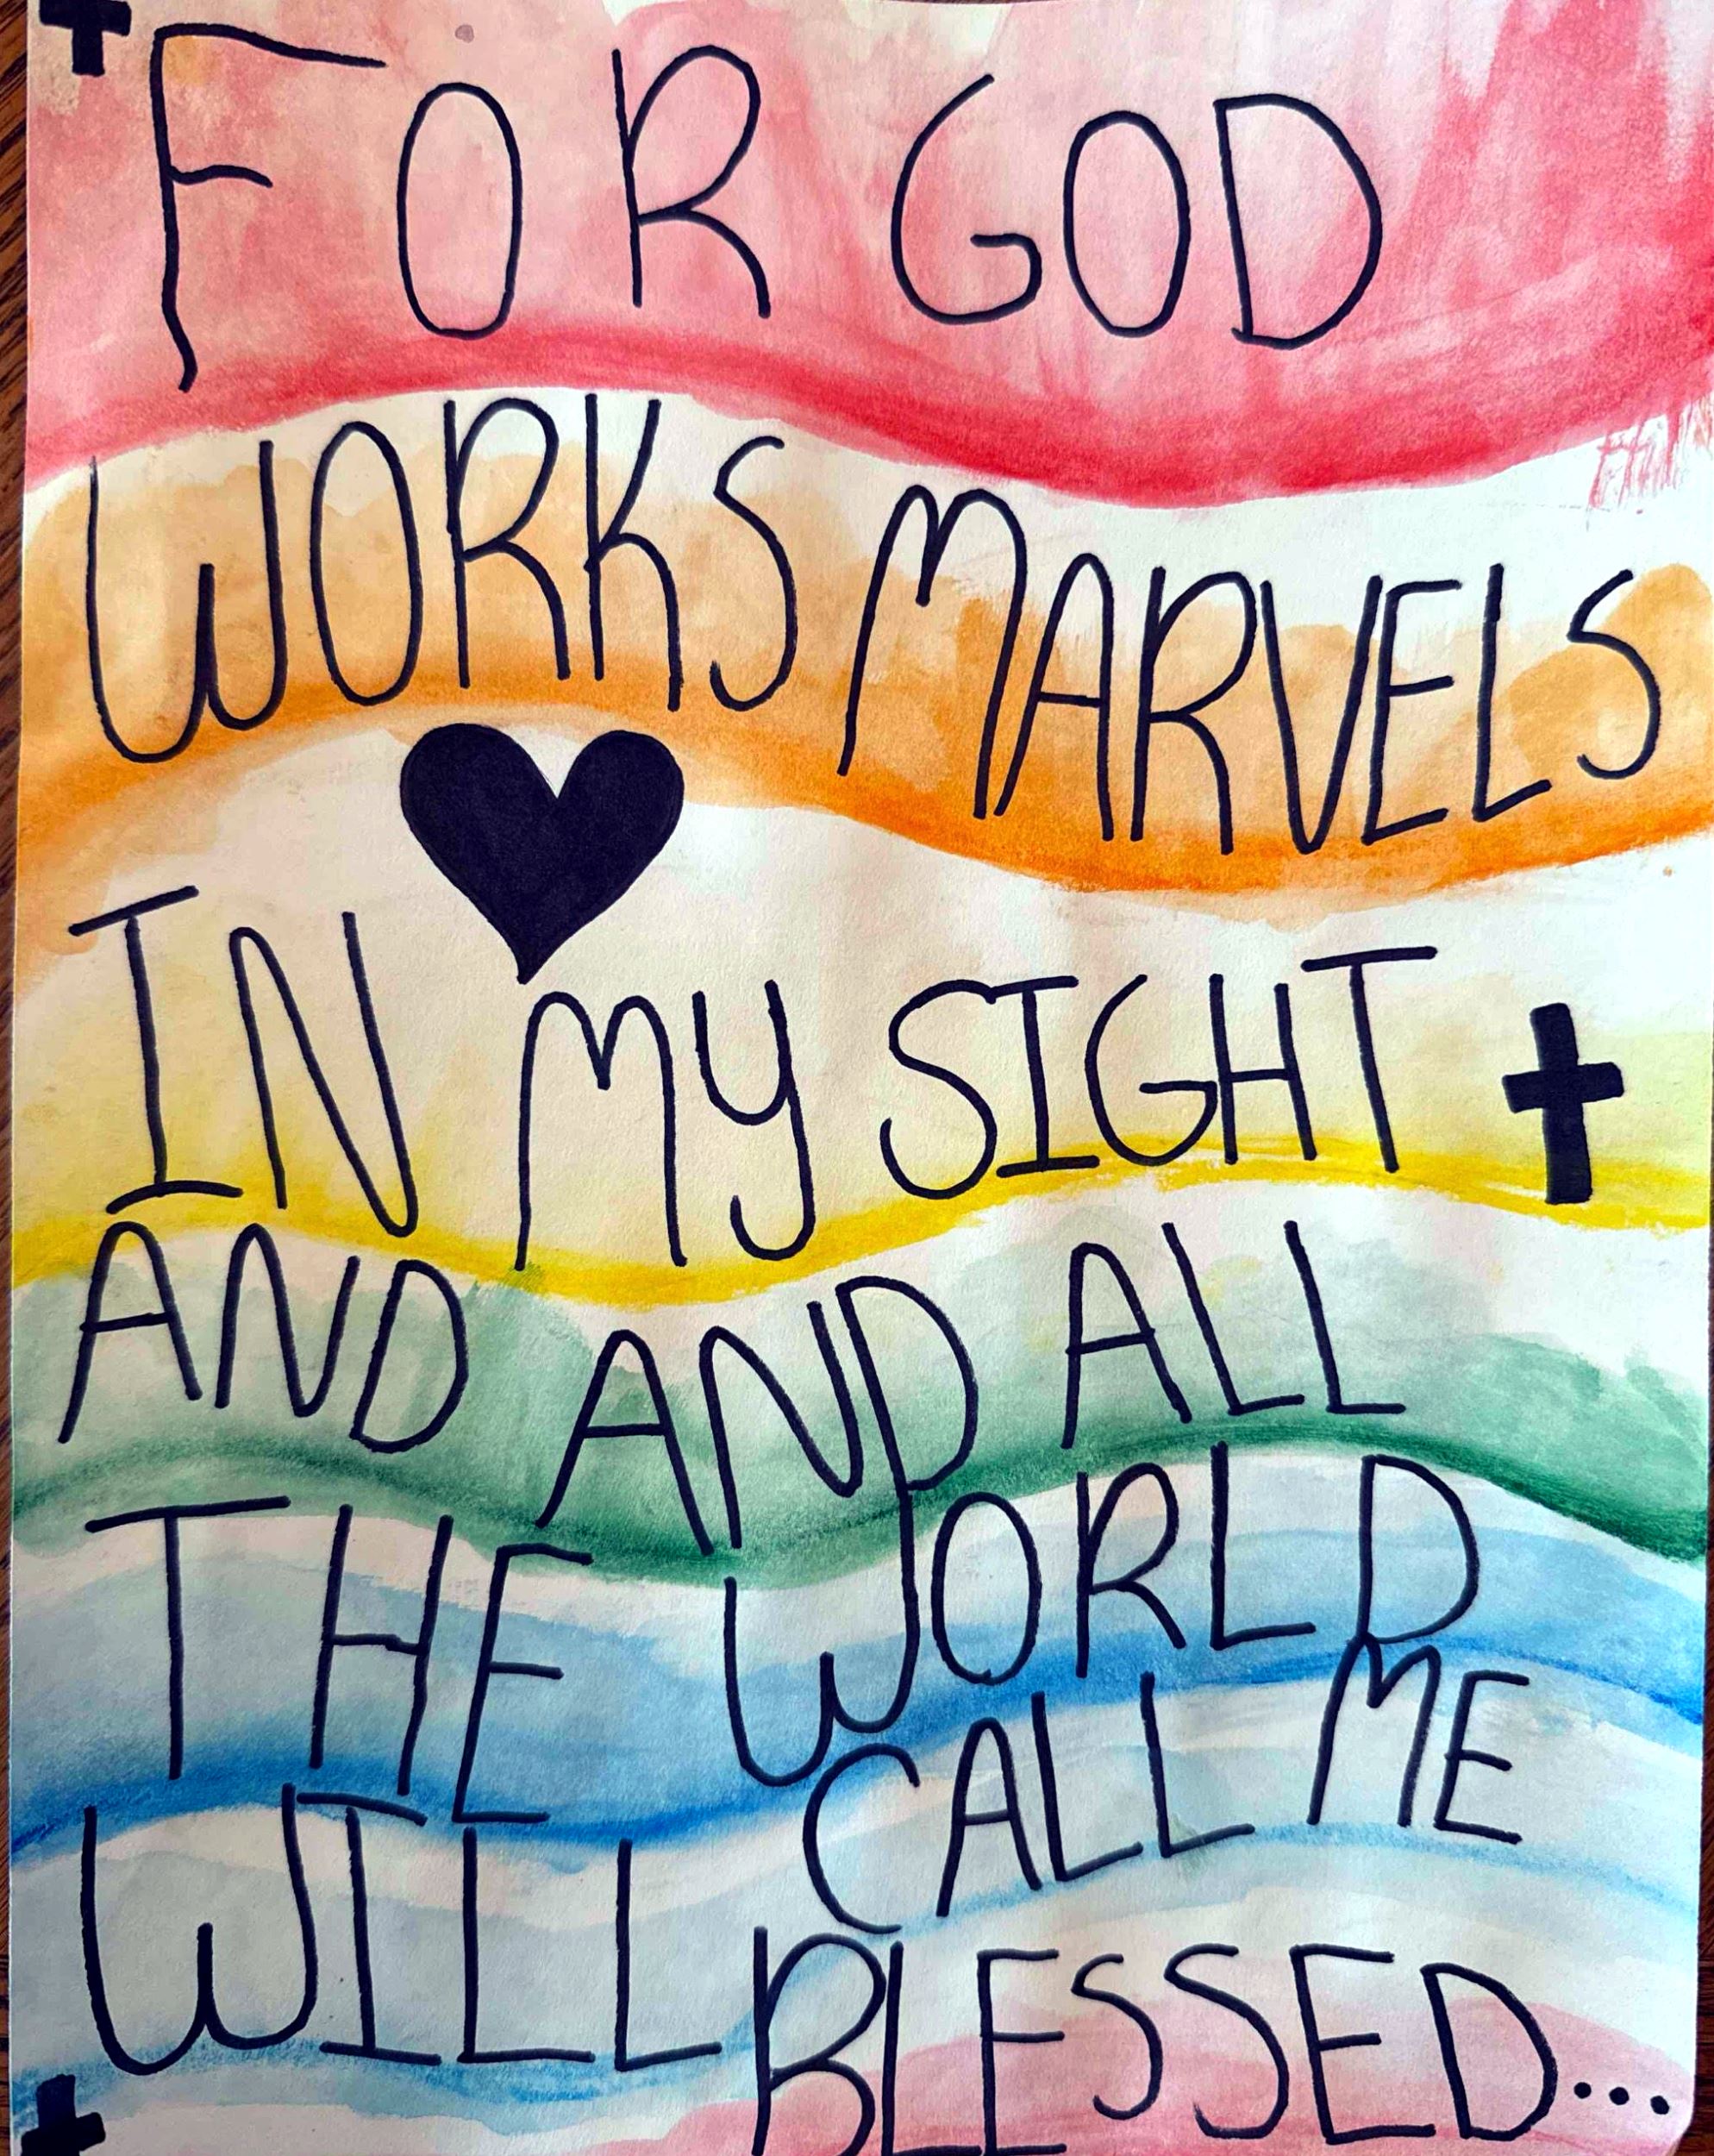 FOR GOD
WORKS MARVELS
IN MY SIGHT
AND AND ALL
THE WORLD
WILL CALL ME
BLESSED...